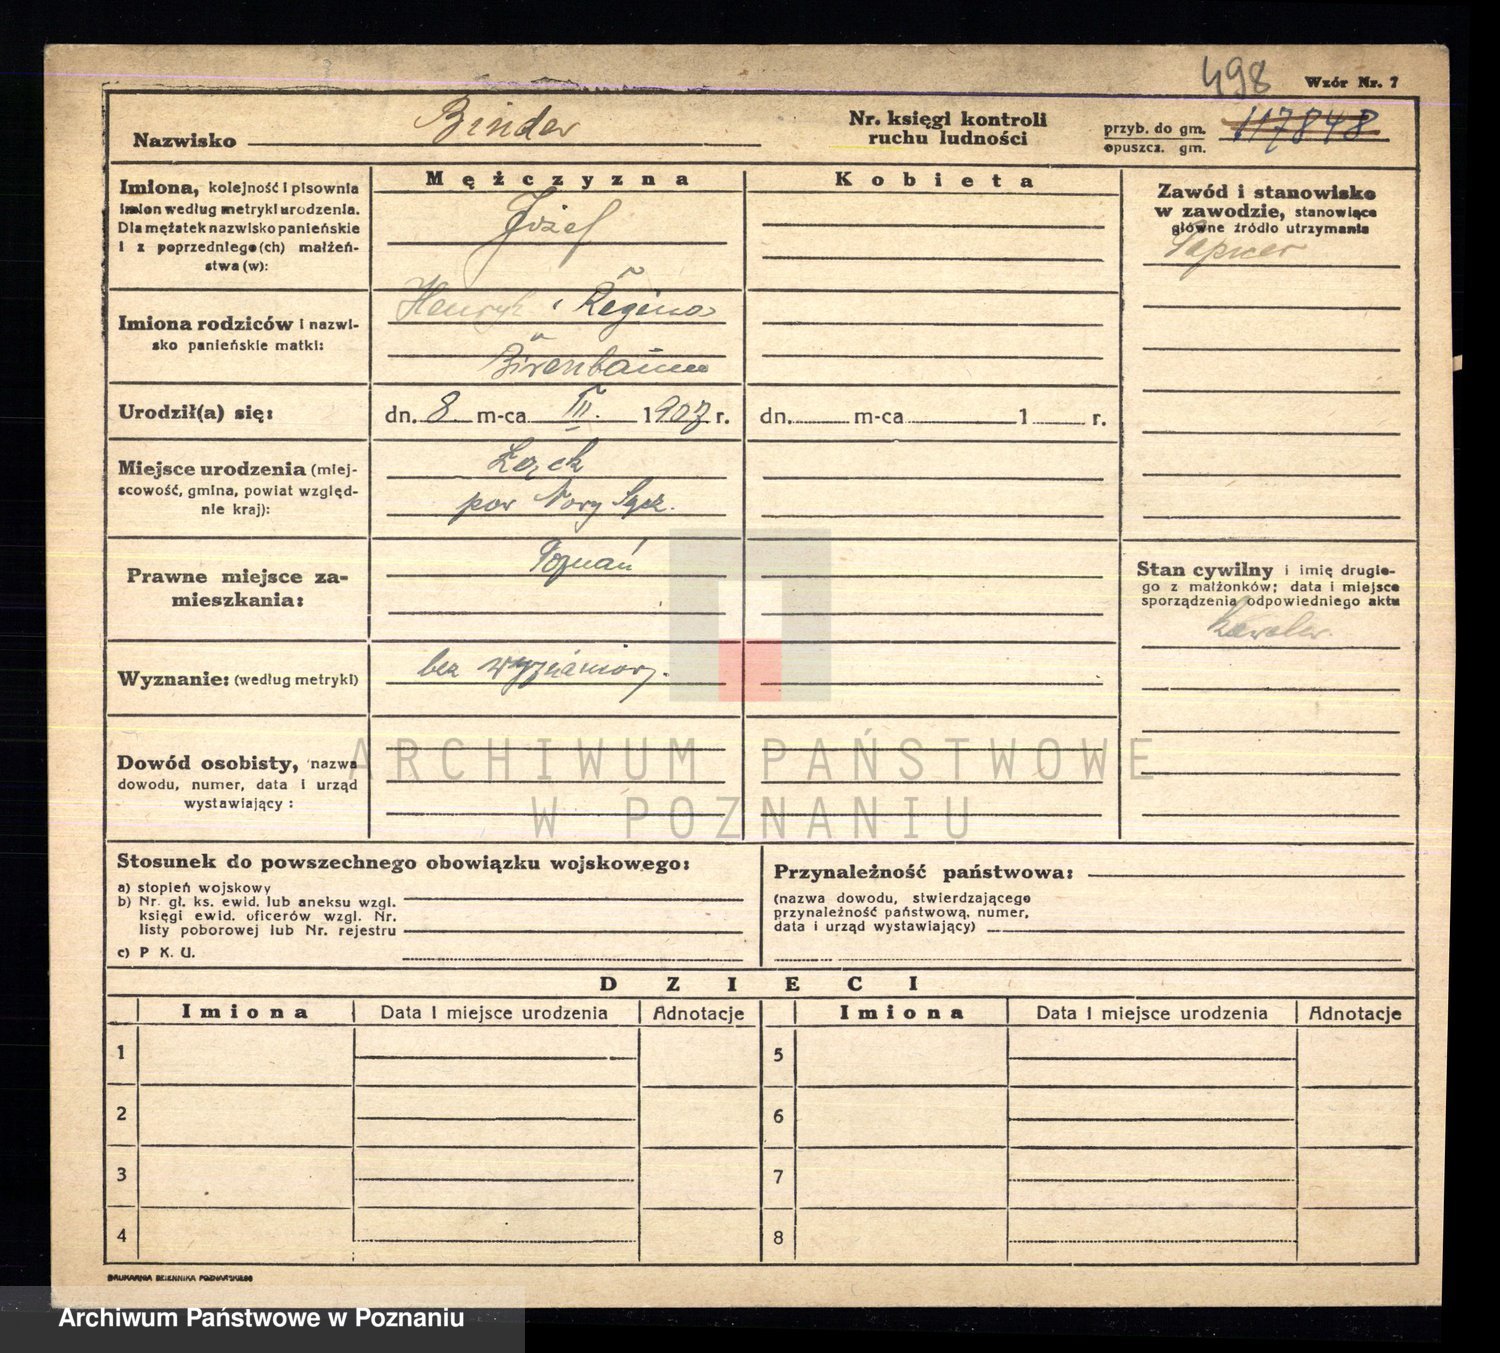 498
Wzór Nr. 7
Nazwisko Binder
Nr. księgi kontroli
ruchu ludności
przyb. do gm.
opuszcz. gm.
117848
Imiona, kolejność i pisownia
imion według metryki urodzenia.
Dla mężatek nazwisko panieńskie
i z poprzedniego (ch) małżeń-
stwa (w):
Mężczyzna
Józef
Kobieta
Zawód i stanowisko
w zawodzie, stanowiące
główne źródło utrzymania
Imiona rodziców i nazwi-
sko panieńskie matki:
Henryk i Regina
Birenbaum
Urodził(a) się:
dn. 8 m-ca III. 1907 r.
dn. m-ca 1 r.
Miejsce urodzenia (miej-
scowość, gmina, powiat względ-
nie kraj):
pow Nowy Sącz.
Prawne miejsce za-
mieszkania:
Poznań
Stan cywilny i imię drugie-
go z małżonków; data i miejsce
sporządzenia odpowiedniego aktu
Kawaler.
Wyznanie: (według metryki)
bez wyznaniowy.
Dowód osobisty, nazwa
dowodu, numer, data i urząd
wystawiający :
ARCHIWUM PAŃSTWOWE
W POZNANIU
Stosunek do powszechnego obowiązku wojskowego:
a) stopień wojskowy
b) Nr. gł. ks. ewid. lub aneksu wzgl.
księgi ewid. oficerów wzgl. Nr.
listy poborowej lub Nr. rejestru
c) P. K. U.
Przynależność państwowa:
(nazwa dowodu, stwierdzającego
przynależność państwową, numer,
data i urząd wystawiający)
DZIECI
Imiona Data i miejsce urodzenia Adnotacje Imiona Data i miejsce urodzenia Adnotacje
1 5
2 6
3 7
4 8
DRUKARNIA DZIENNIKA POZNAŃSKIEGO
Archiwum Państwowe w Poznaniu